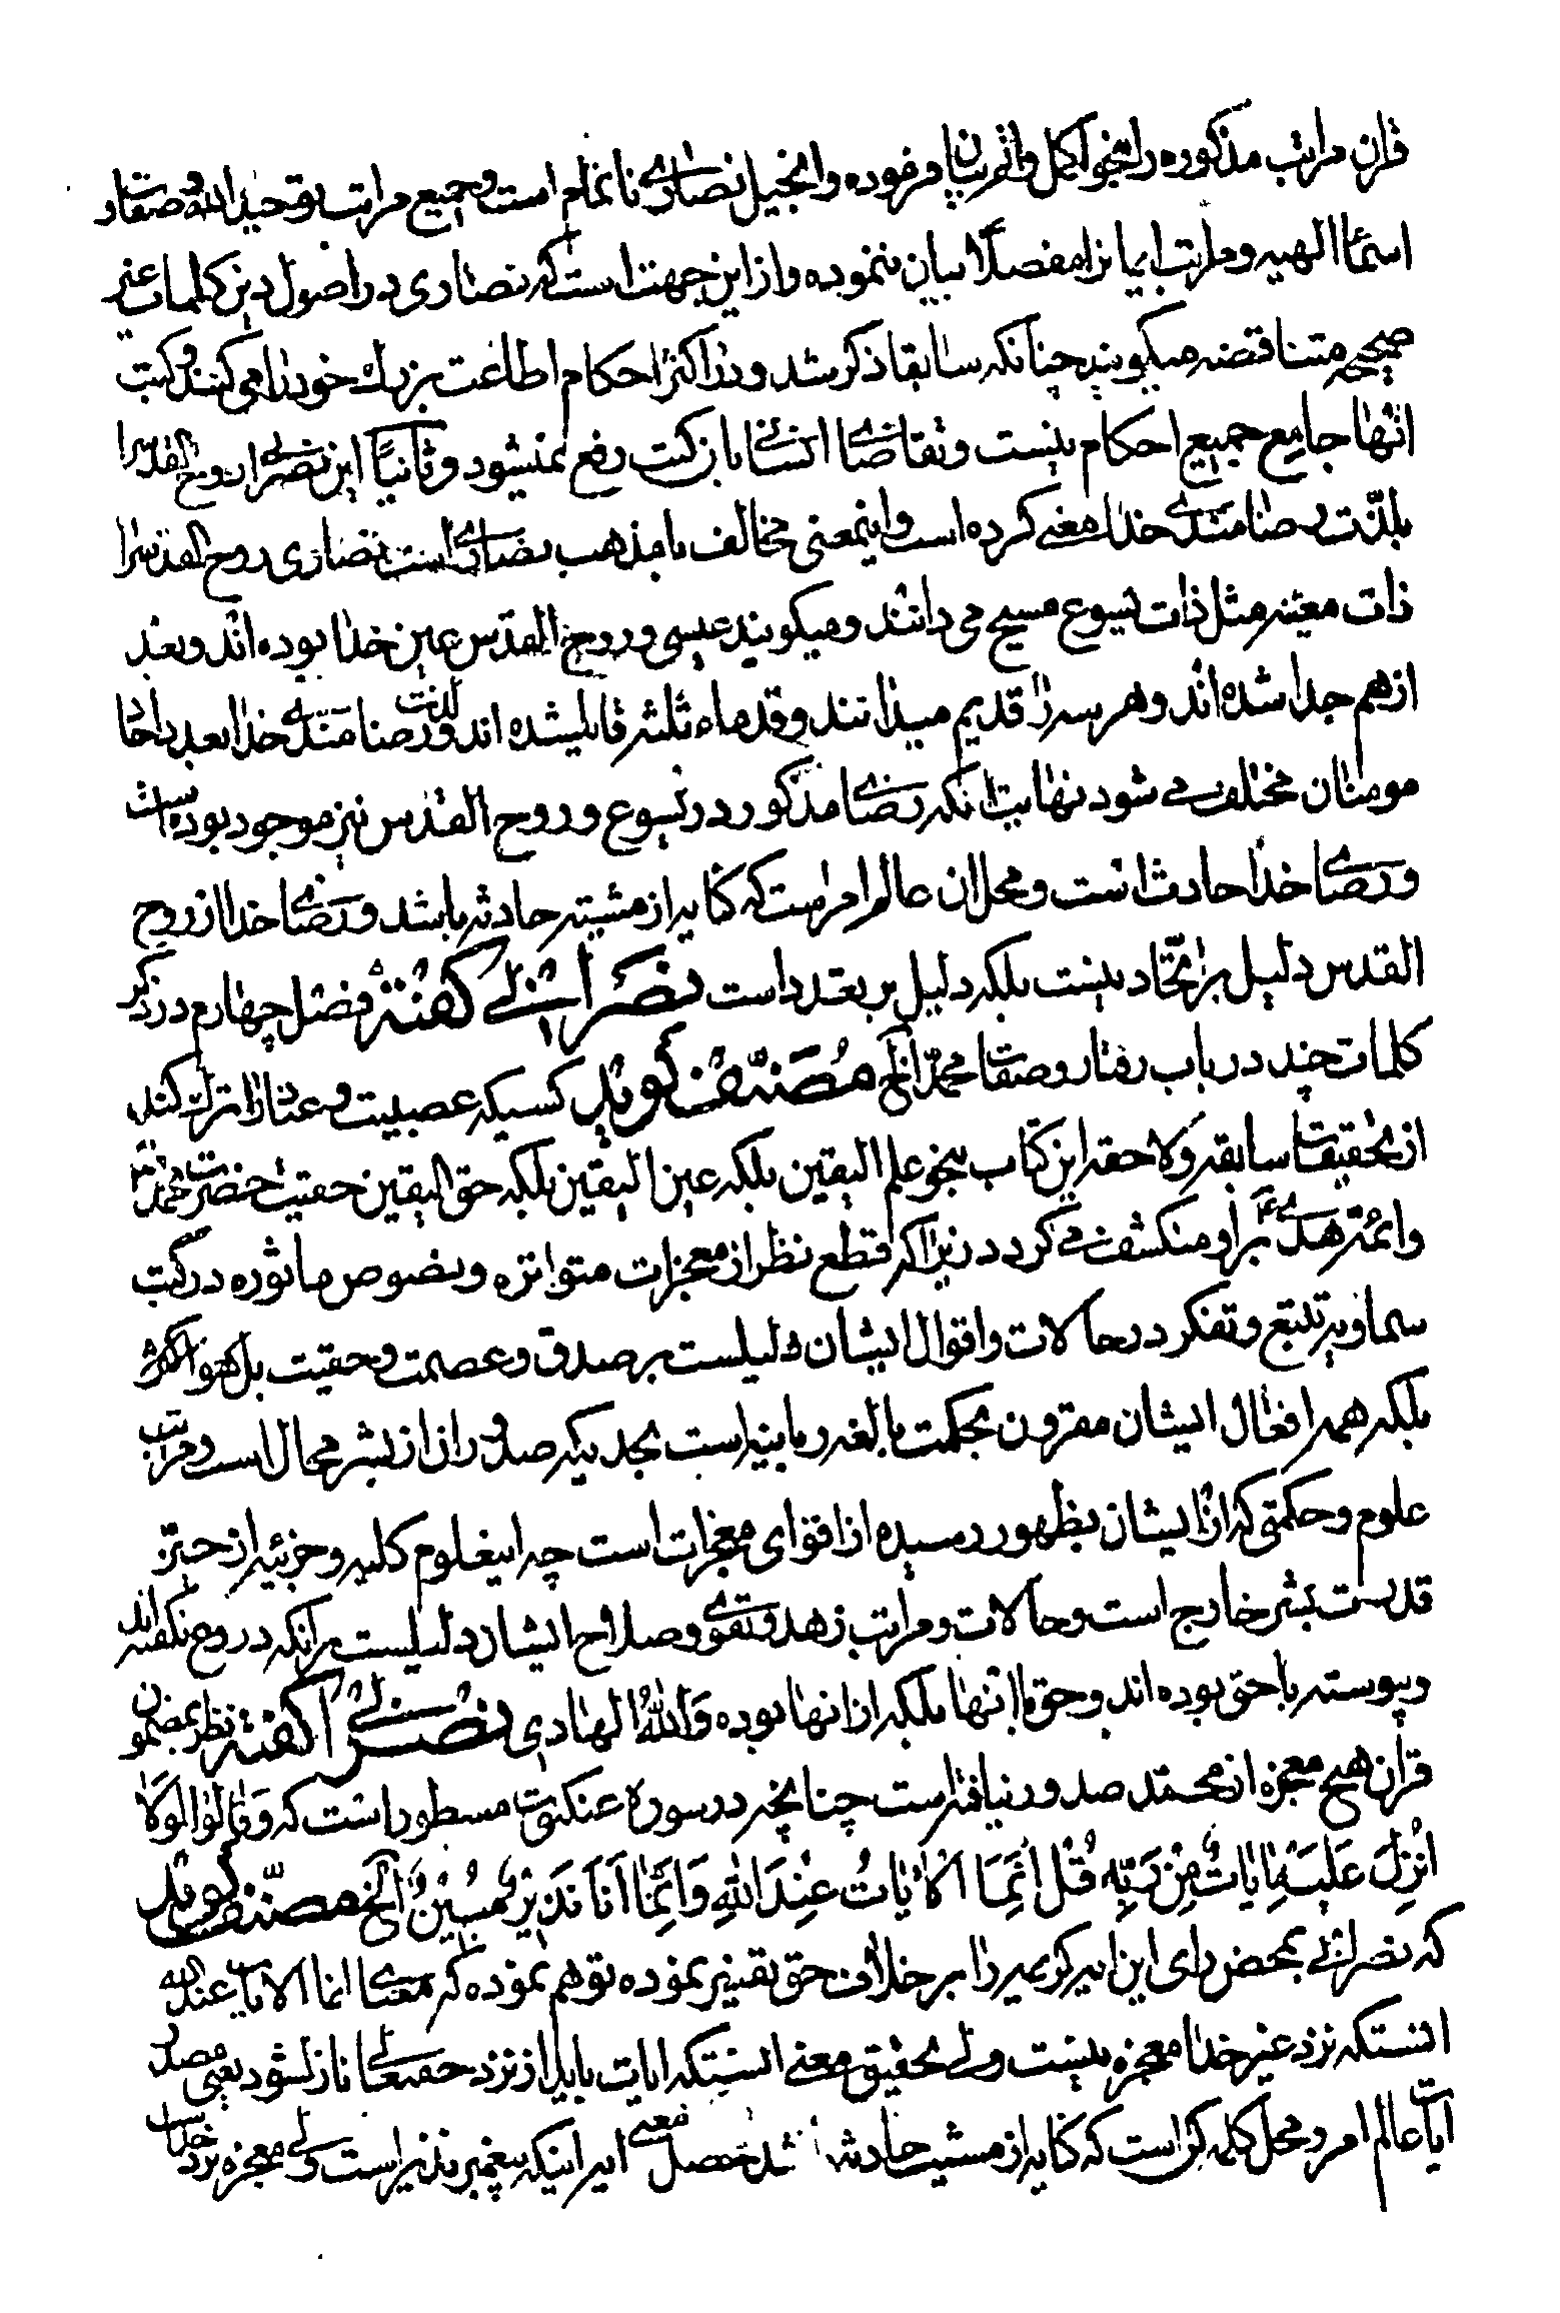 قران مراتب مذکوره را بنحو اکمل و اتم بیان فرموده و انجیل نصاری ناتمام است و جمیع مراتب توحید الله و صفات و
اسماء الهیه و مراتب ایمانرا مفصلاً بیان ننموده و از این جهت است که نصاری در اصول دین کلمات غیر
صحیحه متناقضه میگویند چنانکه سابقا ذکر شد و در اکثر احکام اطاعت بزرك خود را می کنند و کتب
انها جامع جمیع احکام نیست و تقاضای انسانی از کتب رفع نمیشود و ثانیاً این نصرانی روح القدس را
بلذت رضامندی خدا معنی کرده است و اینمعنی مخالف با مذهب نصاری است نصاری روح القدس را
ذات معینه مثل ذات یسوع مسیح می دانند و میگویند عیسی و روح القدس عین خدا بوده اند و بعد
از هم جدا شده اند و هر سه را قدیم میدانند و قدماء ثلثه قایل شده اند و لذت رضامندی خدا بعدد احاد
مومنان مختلف می شود نهایت انکه رضای مذکور در یسوع و روح القدس نیز موجود بوده است
و رضای خدا حادث است و محل ان عالم امر است که کنایه از مشیته حادثه باشد و رضای خدا از روح
القدس دلیل بر اتحاد نیست بلکه دلیل بر تعدد است نصرانی گفته فصل چهارم در ذکر
کلمات چند در باب رفتار و صفات محمد الخ مصنف گوید کسیکه عصبیت و عناد را ترك کند
از تحقیقات سابقه و لاحقه این کتاب بنحو علم الیقین بلکه عین الیقین بلکه حق الیقین حقیت حضرت محمد ص
و ائمه هدی ع بر او منکشف می گردد زیرا که قطع نظر از معجزات متواتره و نصوص ماثوره در کتب
سماویه تتبع و تفکر در حالات و اقوال ایشان دلیلست بر صدق و عصمت و حقیت بل هو اکثر
بلکه همه افعال ایشان مقرون بحکمت بالغه ربانیه است بحدیکه صدور ان از بشر محال است و مراتب
علوم و حکمتی که از ایشان بظهور رسیده از اقوای معجزات است چه اینعلوم کلیه و جزئیه از حیز
قدرت بشر خارج است و حالات و مراتب زهد و تقوی و صلاح ایشان دلیلیست بر انکه دروغ نگفته اند
و پیوسته با حق بوده اند و حق با انها بلکه از انها بوده وَاللهُ الهادی نصرانی گفته نظر بمضمون
قران هیچ معجزه از محمد صدور نیافته است چنانچه در سوره عنکبوت مسطور است که وَقالُوا لَوْلا
اُنْزِلَ عَلَیْهِ ایاتٌ مِنْ رَبِّهِ قُلْ اِنَّمَا الْایاتُ عِنْدَ اللهِ وَاِنَّما اَنَا نَذیرٌ مُبینٌ الخ مصنف گوید
که نصرانی بمحض رای این ایه کریمه را بر خلاف حق تفسیر نموده توهم نموده که معنای انما الایات عند الله
اینستکه نزد غیر خدا معجزه نیست ولی تحقیق معنی اینستکه ایات باید از نزد حقتعالی نازل شود یعنی مصدر
ایات عالم امر و محل کلمه کن است که کنایه از مشیت حادثه شد حصل معنی ایه اینکه پیغمبر نذیر است ولی معجزه نزد خداست